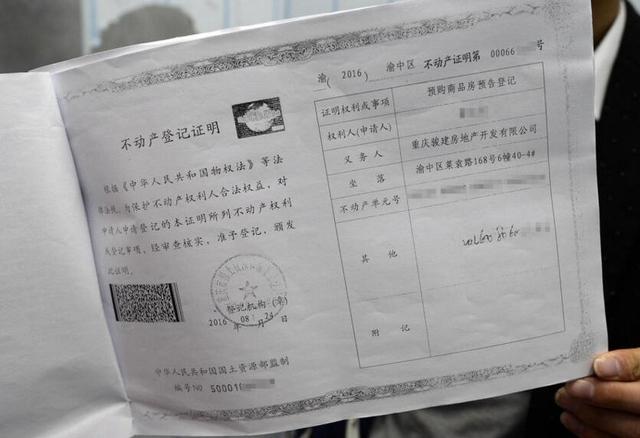 不动产登记证明
根据《中华人民共和国物权法》等法
律法规，为保护不动产权利人合法权益，对
申请人申请登记的本证明所列不动产权利
或登记事项，经审查核实，准予登记，颁发
此证明。
登记机构（章）
2016 年 08 月 24 日
中华人民共和国国土资源部监制
编号NO 50001
渝（2016）渝中区 不动产证明第 00066 号
证明权利或事项 预购商品房预告登记
权利人(申请人)
义务人 重庆骏建房地产开发有限公司
坐落 渝中区菜袁路168号6幢40-4#
不动产单元号
其他
附记